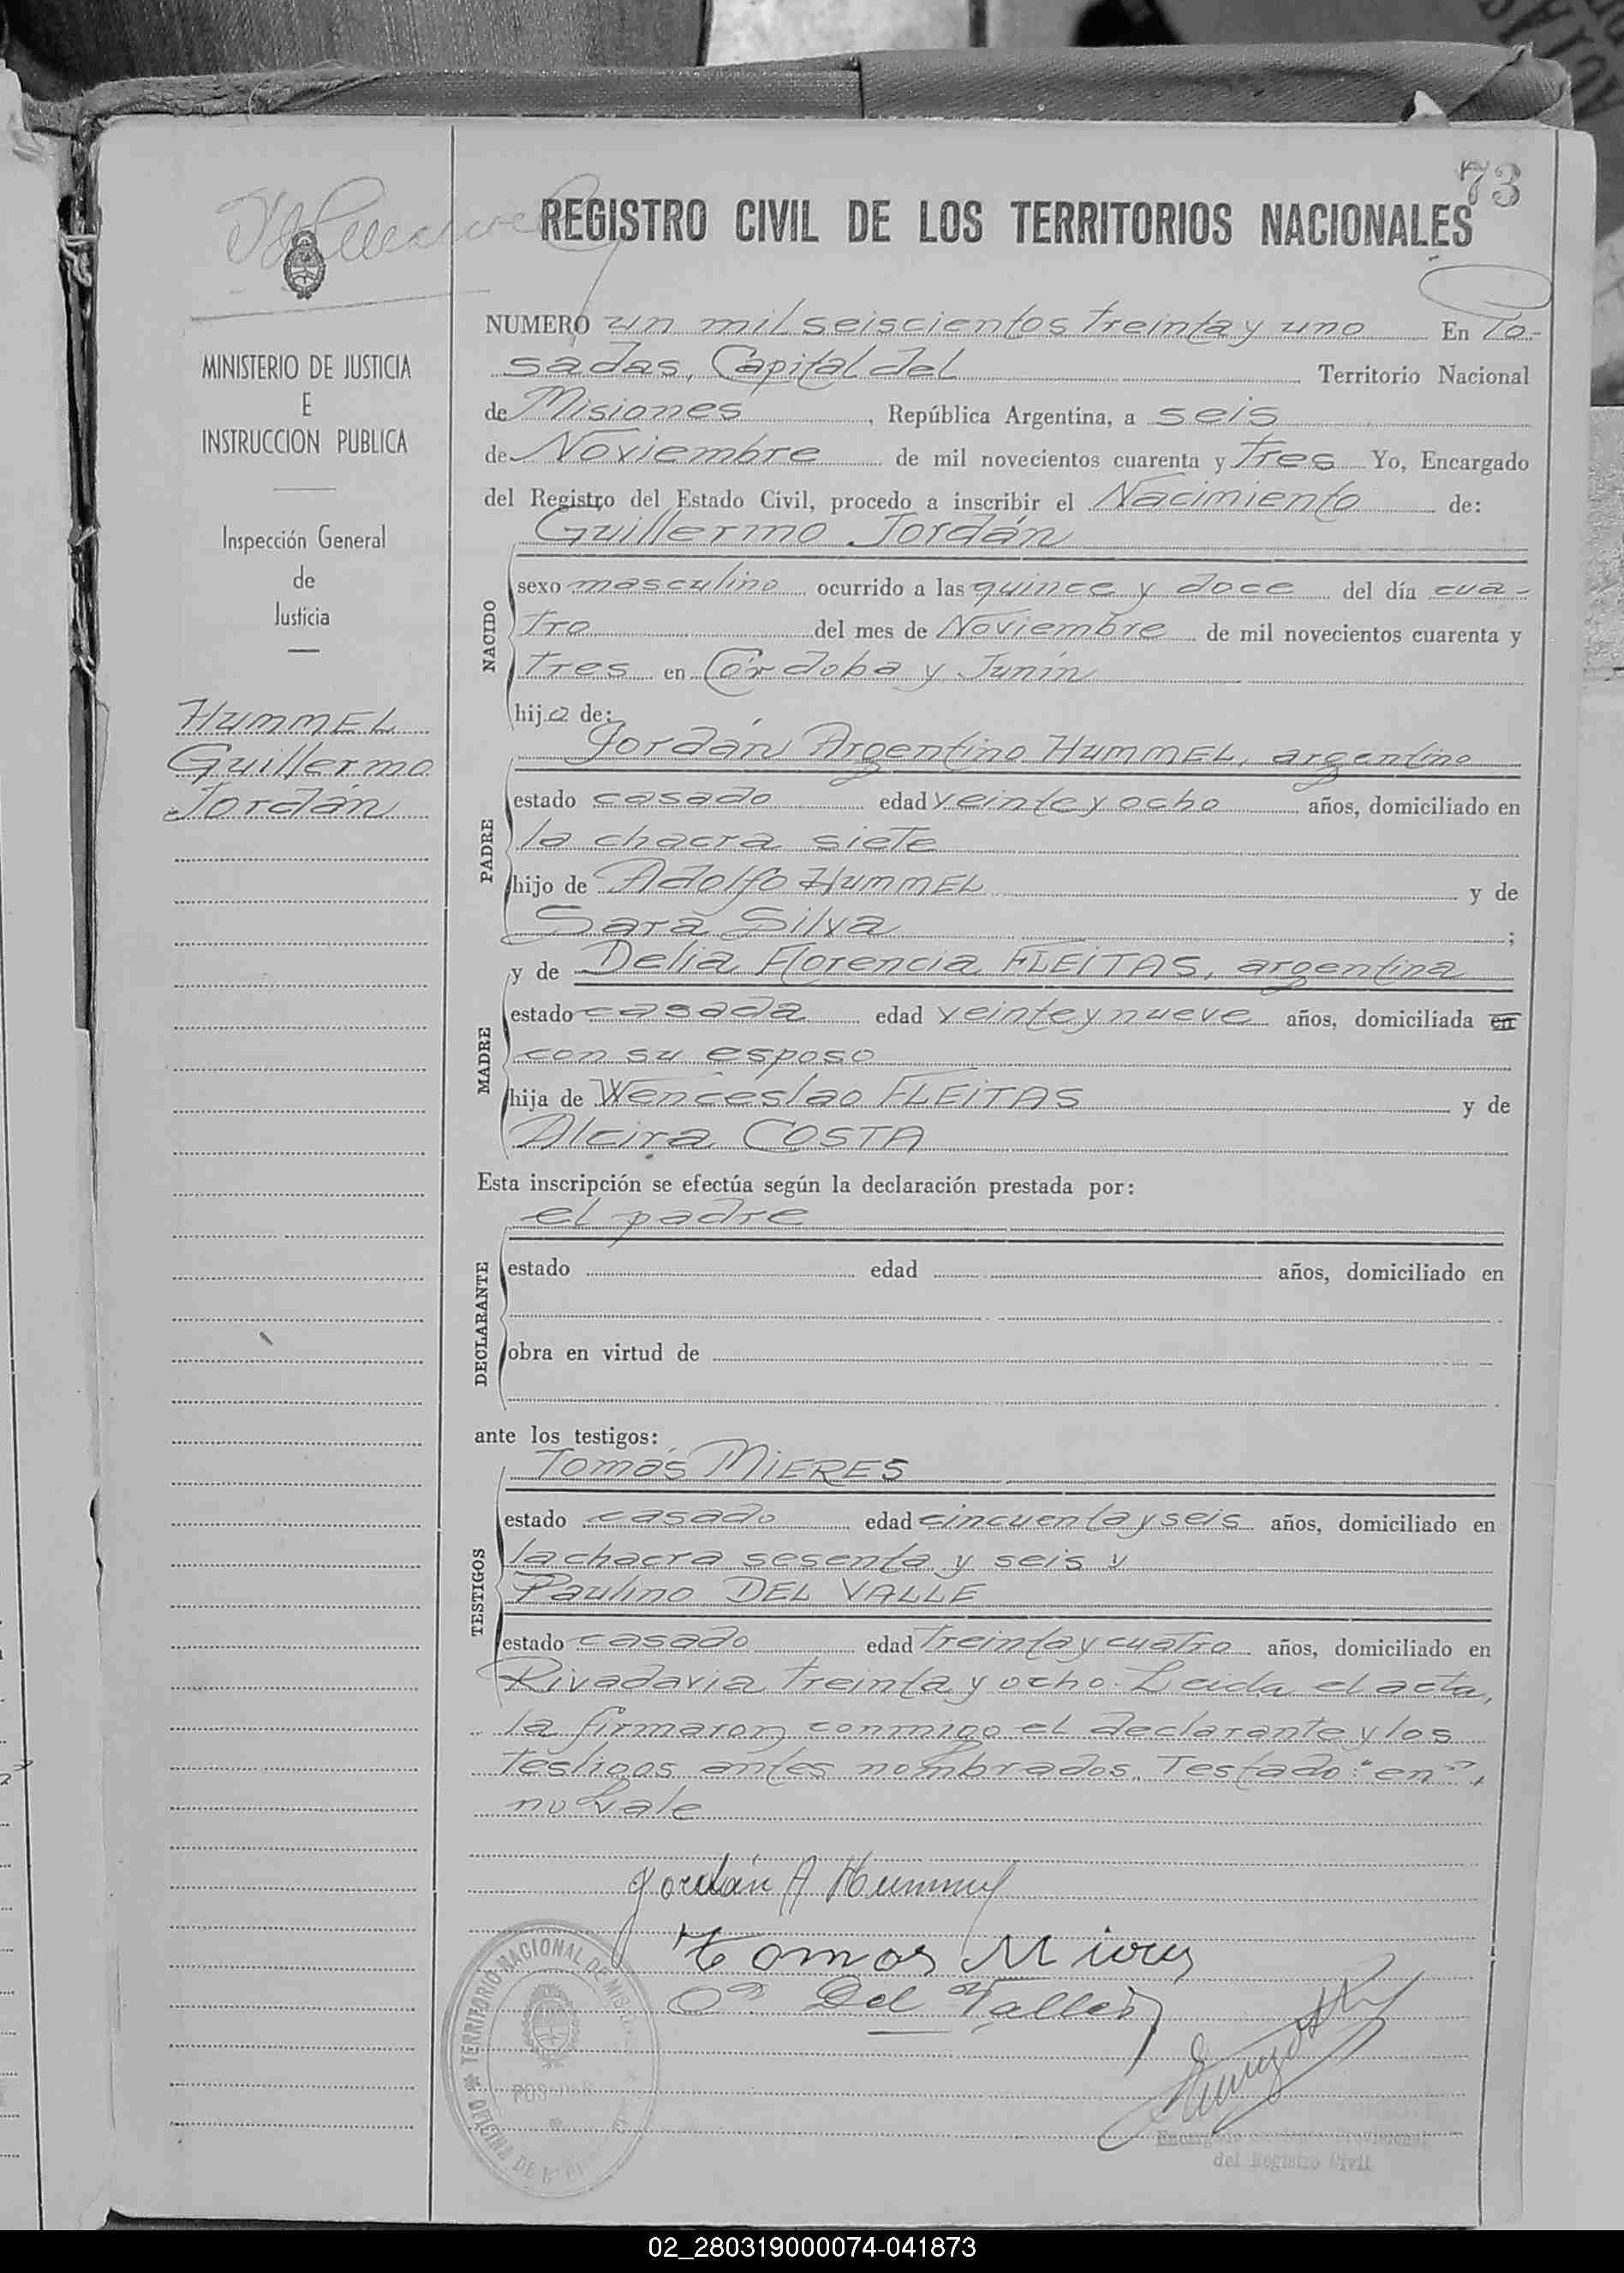 73
REGISTRO CIVIL DE LOS TERRITORIOS NACIONALES
MINISTERIO DE JUSTICIA
E
INSTRUCCION PUBLICA
Inspección General
de
Justicia
HUMMEL
Guillermo
Jordán
NUMERO un mil seiscientos treinta y uno En Po-
sadas, Capital del Territorio Nacional
de Misiones, República Argentina, a seis
de Noviembre de mil novecientos cuarenta y tres Yo, Encargado
del Registro del Estado Civil, procedo a inscribir el Nacimiento de:
Guillermo Jordán
NACIDO
sexo masculino ocurrido a las quince y doce del día cua-
tro del mes de Noviembre de mil novecientos cuarenta y
tres en Córdoba y Junín
hijo de:
Jordán Argentino HUMMEL, argentino
PADRE
estado casado edad veinte y ocho años, domiciliado en
la chacra siete
hijo de Adolfo HUMMEL y de
Sara Silva ;
y de Delia Florencia FLEITAS, argentina
MADRE
estado casada edad veinte y nueve años, domiciliada en
con su esposo
hija de Wenceslao FLEITAS y de
Alcira COSTA
Esta inscripción se efectúa según la declaración prestada por:
el padre
DECLARANTE
estado edad años, domiciliado en
obra en virtud de
ante los testigos:
Tomás MIERES
TESTIGOS
estado casado edad cincuenta y seis años, domiciliado en
la chacra sesenta y seis y
Paulino DEL VALLE
estado casado edad treinta y cuatro años, domiciliado en
Rivadavia treinta y ocho. Leida el acta,
la firmaron conmigo el declarante y los
testigos antes nombrados. Testado: "en",
no vale
Jordán A Hummel
Tomas Mieres
Del Valle
TERRITORIO NACIONAL DE MISIONES
OFICINA DE
del Registro Civil
02_280319000074-041873